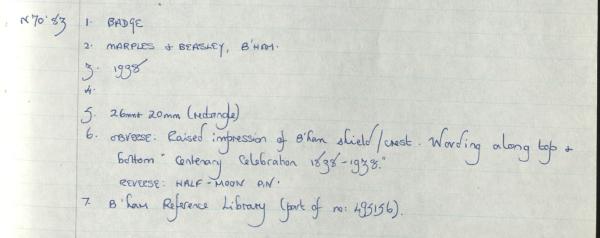 N70'83 1. BADGE
2. MARPLES & BEASLEY, B'HAM.
3. 1938
4.
5. 26mm + 20mm (rectangle)
6. OBVERSE: Raised impression of B'ham shield/crest. Wording along top &
bottom "Centenary Celebration 1838-1938."
REVERSE: HALF-MOON PIN.
7. B'ham Reference Library (part of no: 495156).